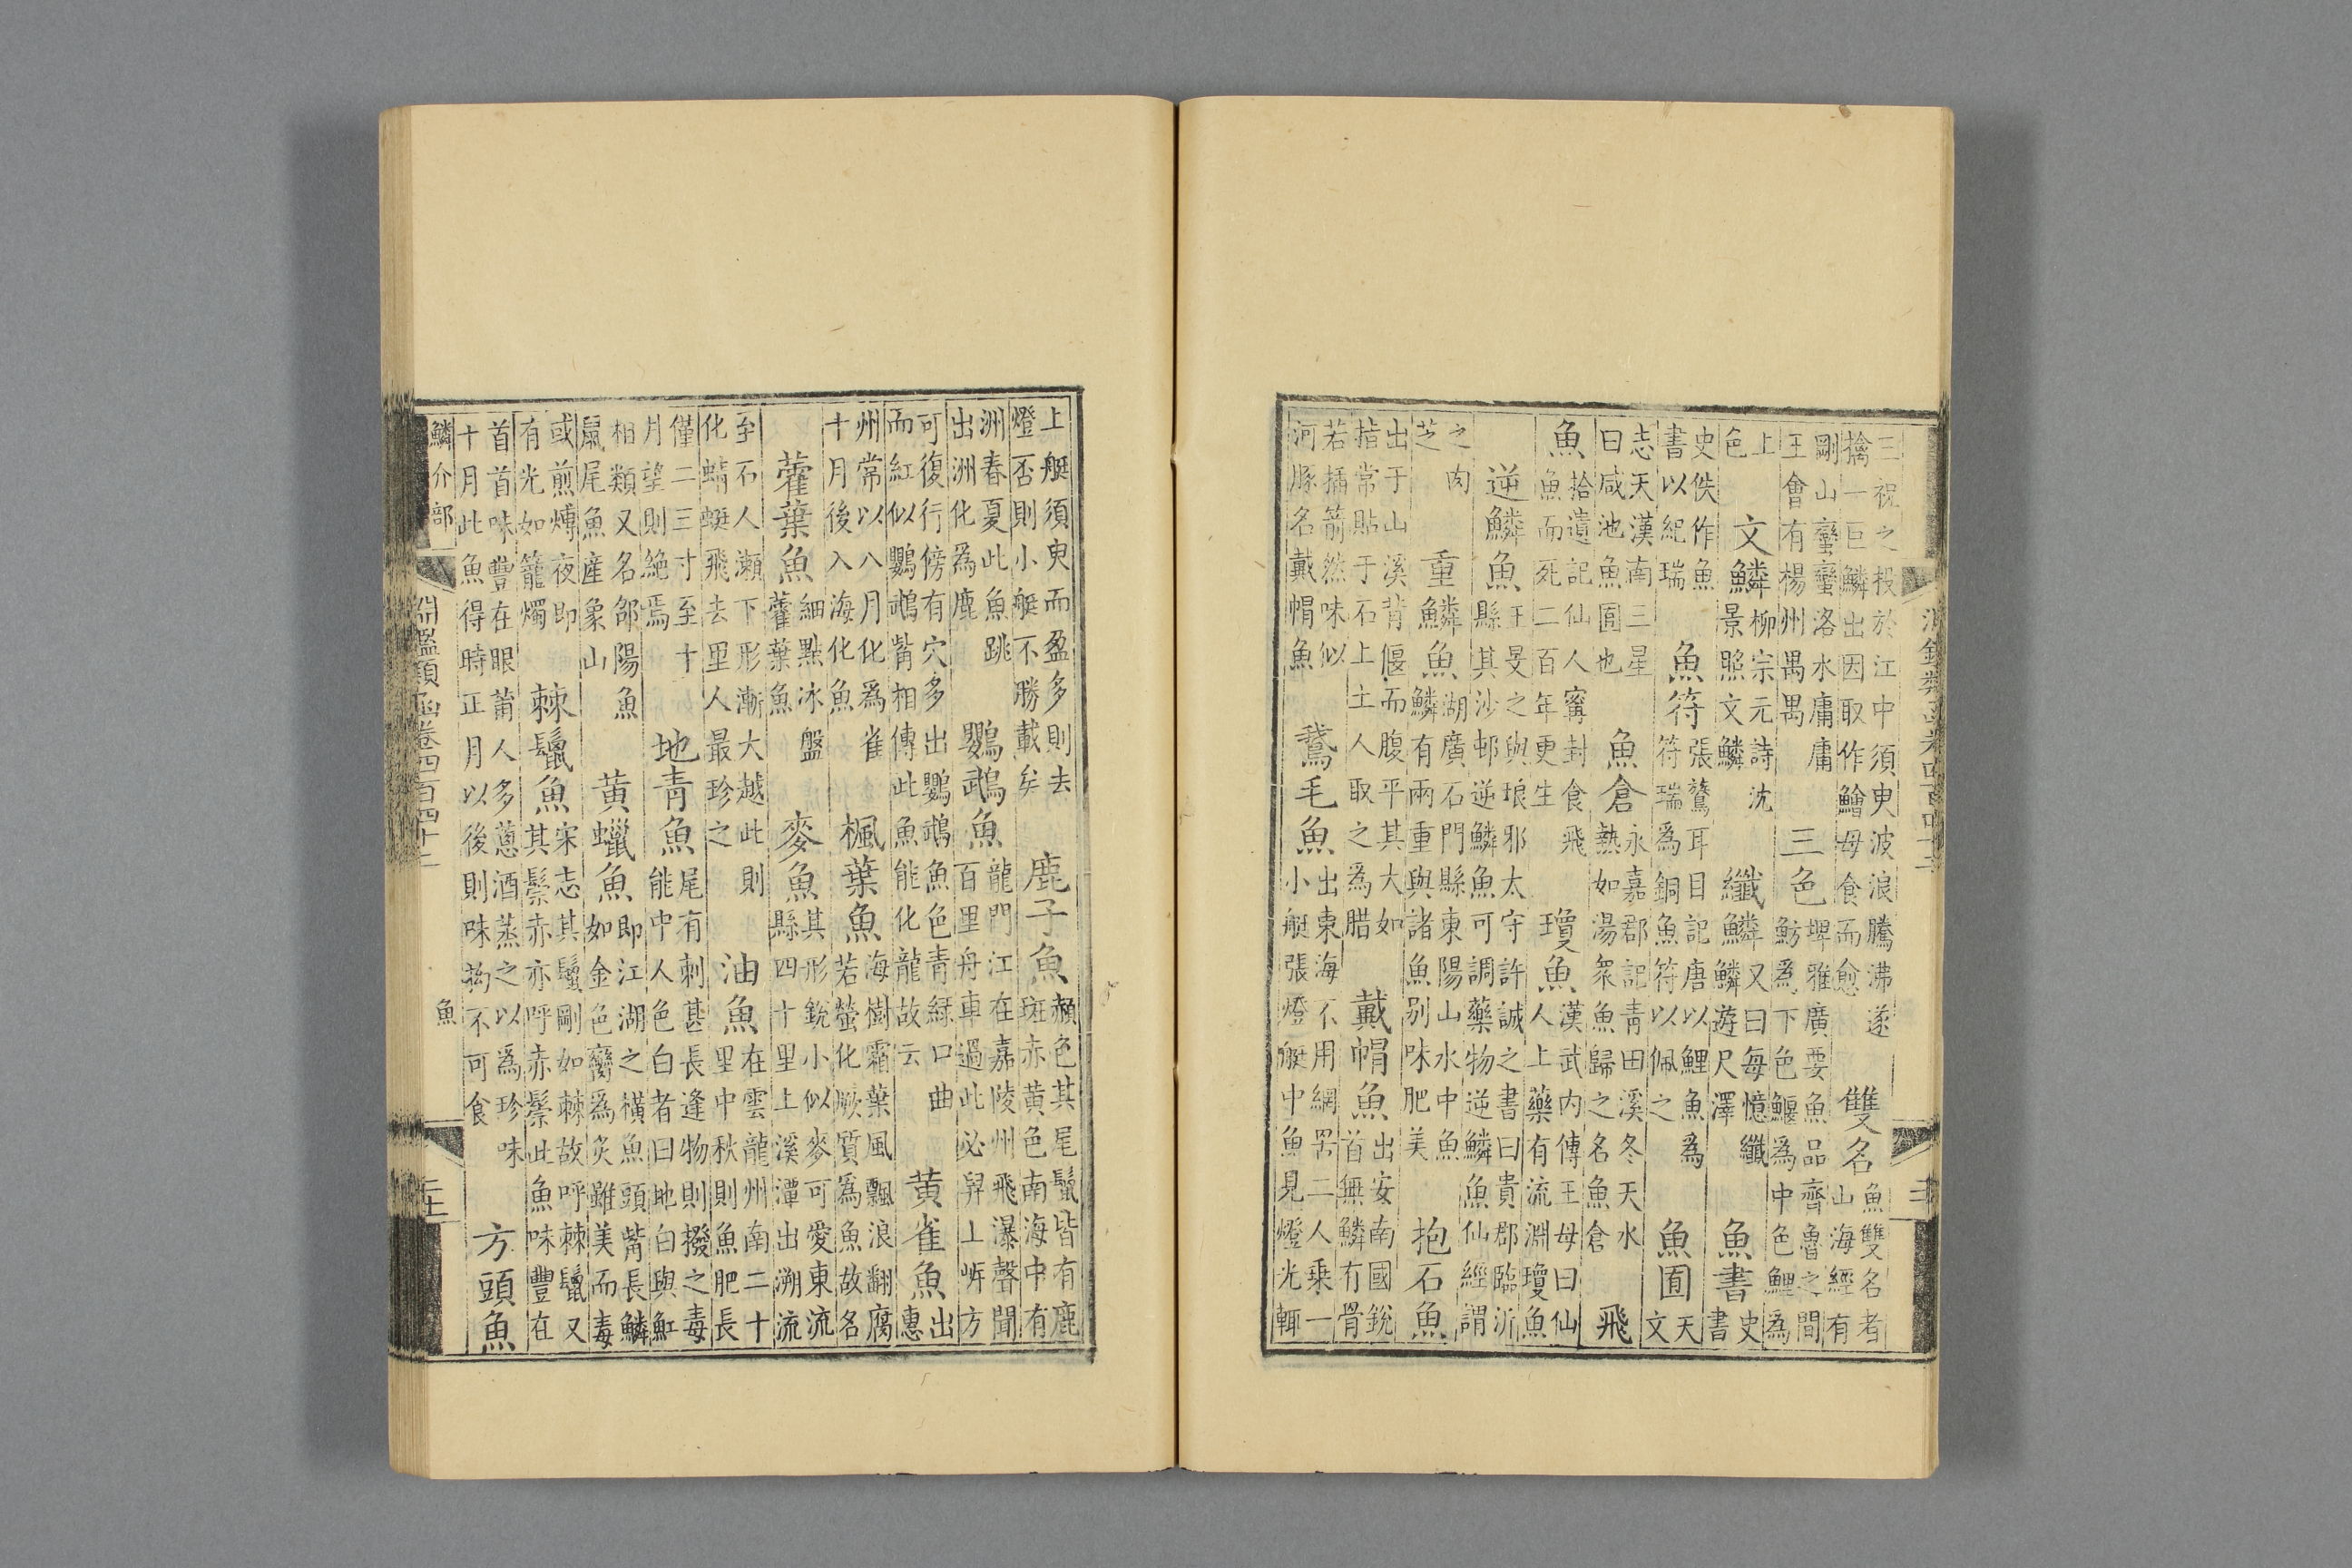 三祝之投於江中須臾波浪騰沸遂
擒一巨鱗出因取作鱠母食而愈
雙名
魚雙名者
山海經有
剛山蠻蠻洛水庸庸
王會有楊州禺禺
三色
埤雅廣要魚品齊魯之間
魴為下色鰋為中色鯉為
上
色
文鱗
柳宗元詩沈
景照文鱗
纎鱗
又曰每憶纎
鱗遊尺澤
魚書
史
書
史佚作魚
書以紀瑞
魚符
張鷟耳目記唐以鯉魚為
符瑞為銅魚符以佩之
魚囿
天
文
志天漢南三星
曰咸池魚囿也
魚倉
永嘉郡記青田溪冬天水
熱如湯衆魚歸之名魚倉
飛
魚
拾遺記仙人寗封食飛
魚而死二百年更生
瓊魚
漢武内傳王母曰仙
人上藥有流淵瓊魚
逆鱗魚
王旻之與琅邪太守許誠之書曰貴郡臨沂
縣其沙邨逆鱗魚可調藥物逆鱗魚仙經謂
之肉
芝
重鱗魚
湖廣石門縣東陽山水中魚
鱗有兩重與諸魚别味肥美
抱石魚
出于山溪背偃而腹平其大如
指常貼于石上土人取之為腊
戴帽魚
出安南國銳
首無鱗有骨
若插箭然味似
河豚名戴帽魚
鵞毛魚
出東海不用網罟二人乗一
小艇張燈艇中魚見燈光輒
上艇須臾而盈多則去
燈否則小艇不勝載矣
鹿子魚
赬色其尾鬛皆有鹿
斑赤黄色南海中有
洲春夏此魚跳
出洲化為鹿
鸚鵡魚
龍門江在嘉陵州飛瀑聲聞
百里舟車過此必舁上岍方
可復行傍有穴多出鸚鵡魚色青緑口曲
而紅似鸚鵡觜相傳此魚能化龍故云
黄雀魚
出
惠
州常以八月化為雀
十月後入海化魚
楓葉魚
海樹霜葉風飄浪翻腐
若螢化厥質為魚故名
藿葉魚
細點冰盤
藿葉魚
麥魚
其形銳小似麥可愛東流
縣四十里上溪潭出溯流
至石人瀬下形漸大越此則
化蜻蜓飛去里人最珍之
油魚
在雲龍州南二十
里中秋則魚肥長
僅二三寸至十
月望則絶焉
地青魚
尾有刺甚長逢物則撥之毒
能中人色白者曰地白與魟
相類又名郃陽魚
鼠尾魚産象山
黄蠟魚
即江湖之横魚頭觜長鱗
如金色臠為炙雖美而毒
或煎煿夜即
有光如籠燭
棘鬛魚
宋志其鬛剛如棘故呼棘鬛又
其鬃赤亦呼赤鬃此魚味豐在
首首味豐在眼莆人多蔥酒蒸之以為珍味
十月此魚得時正月以後則味拗不可食
方頭魚
鱗介部
淵鑑類函卷四百四十二
魚